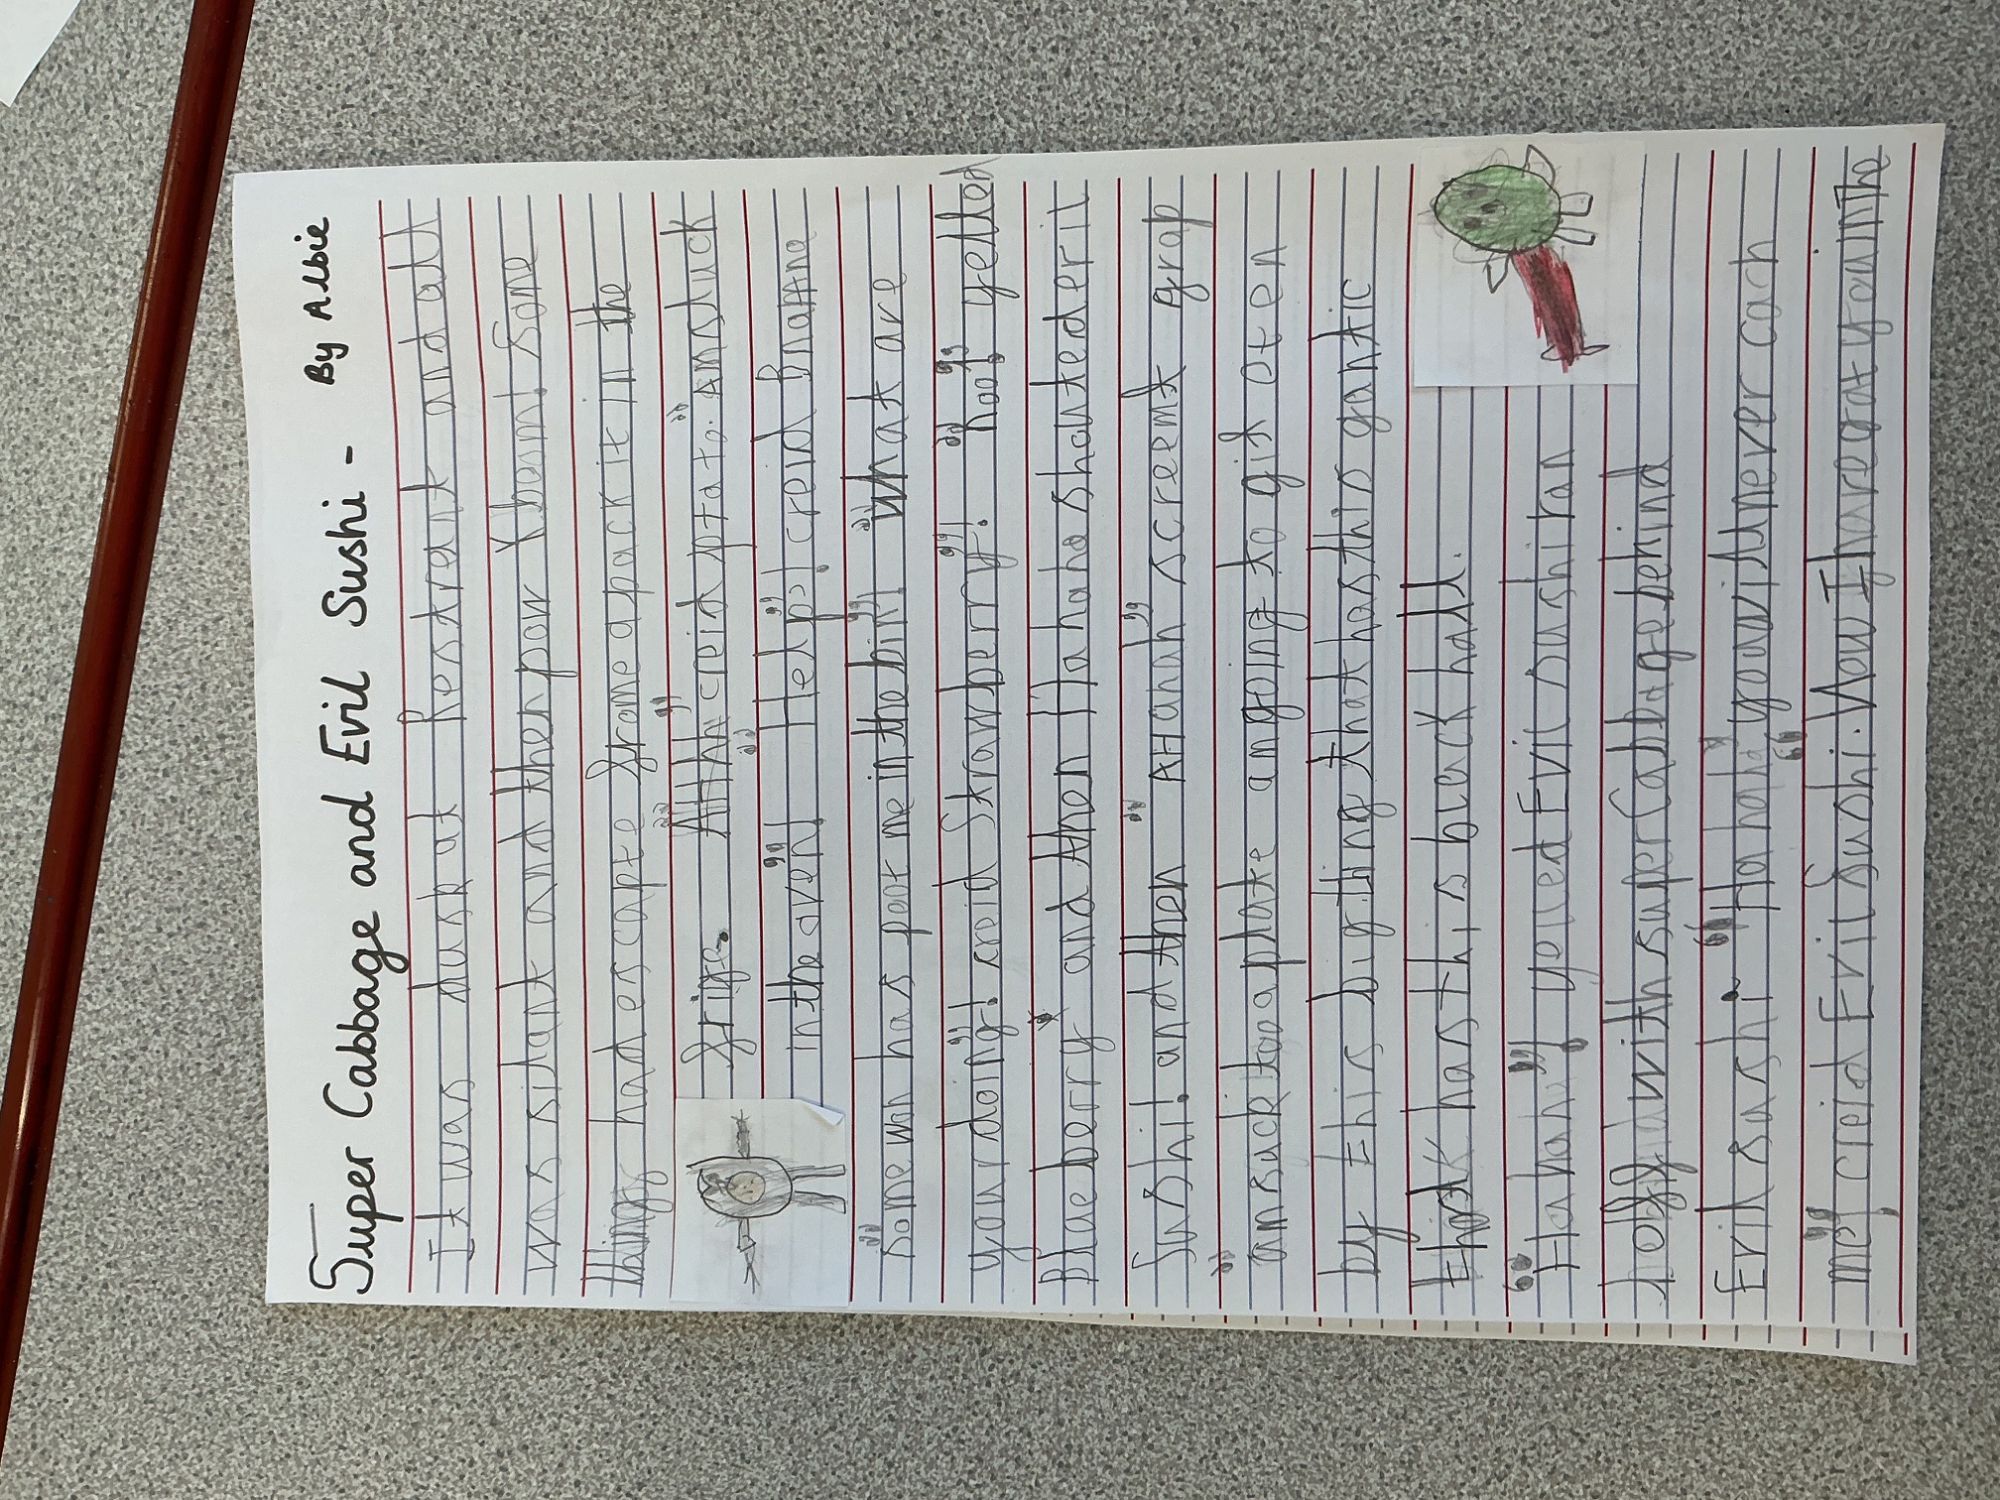 Super Cabbage and Evil Sushi - By Albie
It was dusk at Restreant and all
was silant and then pow Xbam! Some
things had escapte frome a pack it in the
frije. "AHHh" creid ptato. "Am stuck
in the oven!" "Help!" creid Bnattna
"Some won has poot me in the bin!" "What are
your doing"! creid Strawberry"! "Noo!" yelled
Blueberry and then Hahaha shouted eril
Sushi! and then "AHahah" screemt grap
"am suck to a plate am going to git eten
by this big thing that has this gantic
thick has this black hall.
"Hahah" yelled Evil sushi ran
hoff with super Cabbage behind
Evil sushi. "Hahaha you will never cach
me", creid Evil Sushi. Now I haregat you in the